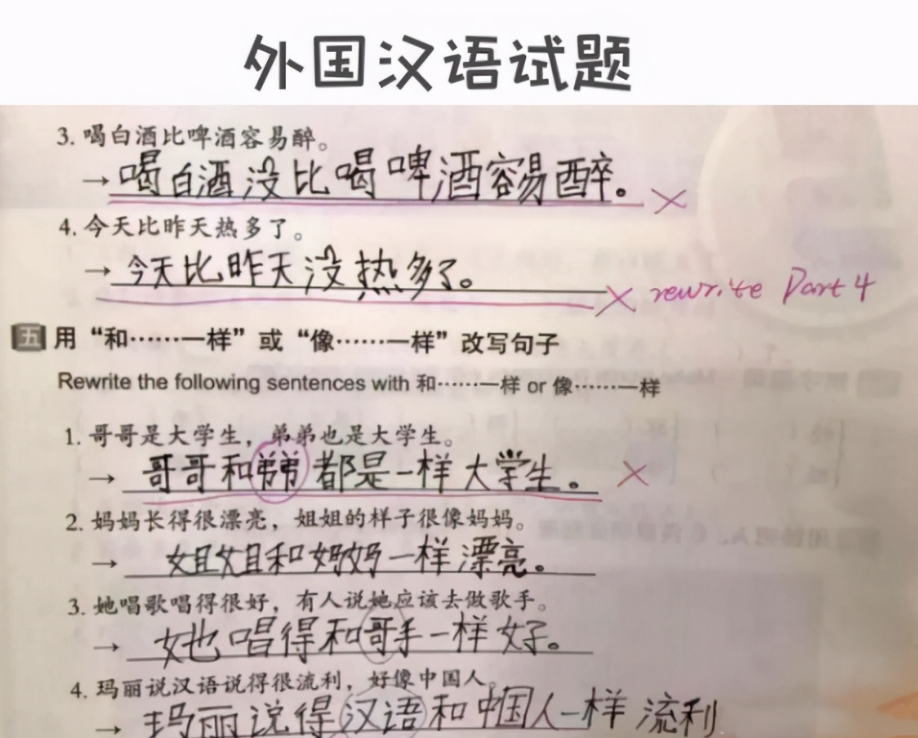 外国汉语试题
3. 喝白酒比啤酒容易醉。
→ 喝白酒没比喝啤酒容易醉。 ×
4. 今天比昨天热多了。
→ 今天比昨天没热多了。 × rewrite Part 4
五 用“和……一样”或“像……一样”改写句子
Rewrite the following sentences with 和……一样 or 像……一样
1. 哥哥是大学生，弟弟也是大学生。
→ 哥哥和弟弟都是一样大学生。 ×
2. 妈妈长得很漂亮，姐姐的样子很像妈妈。
→ 姐姐和妈妈一样漂亮。
3. 她唱歌唱得很好，有人说她应该去做歌手。
→ 她唱得和哥手一样好。
4. 玛丽说汉语说得很流利，好像中国人。
→ 玛丽说得汉语和中国人一样流利